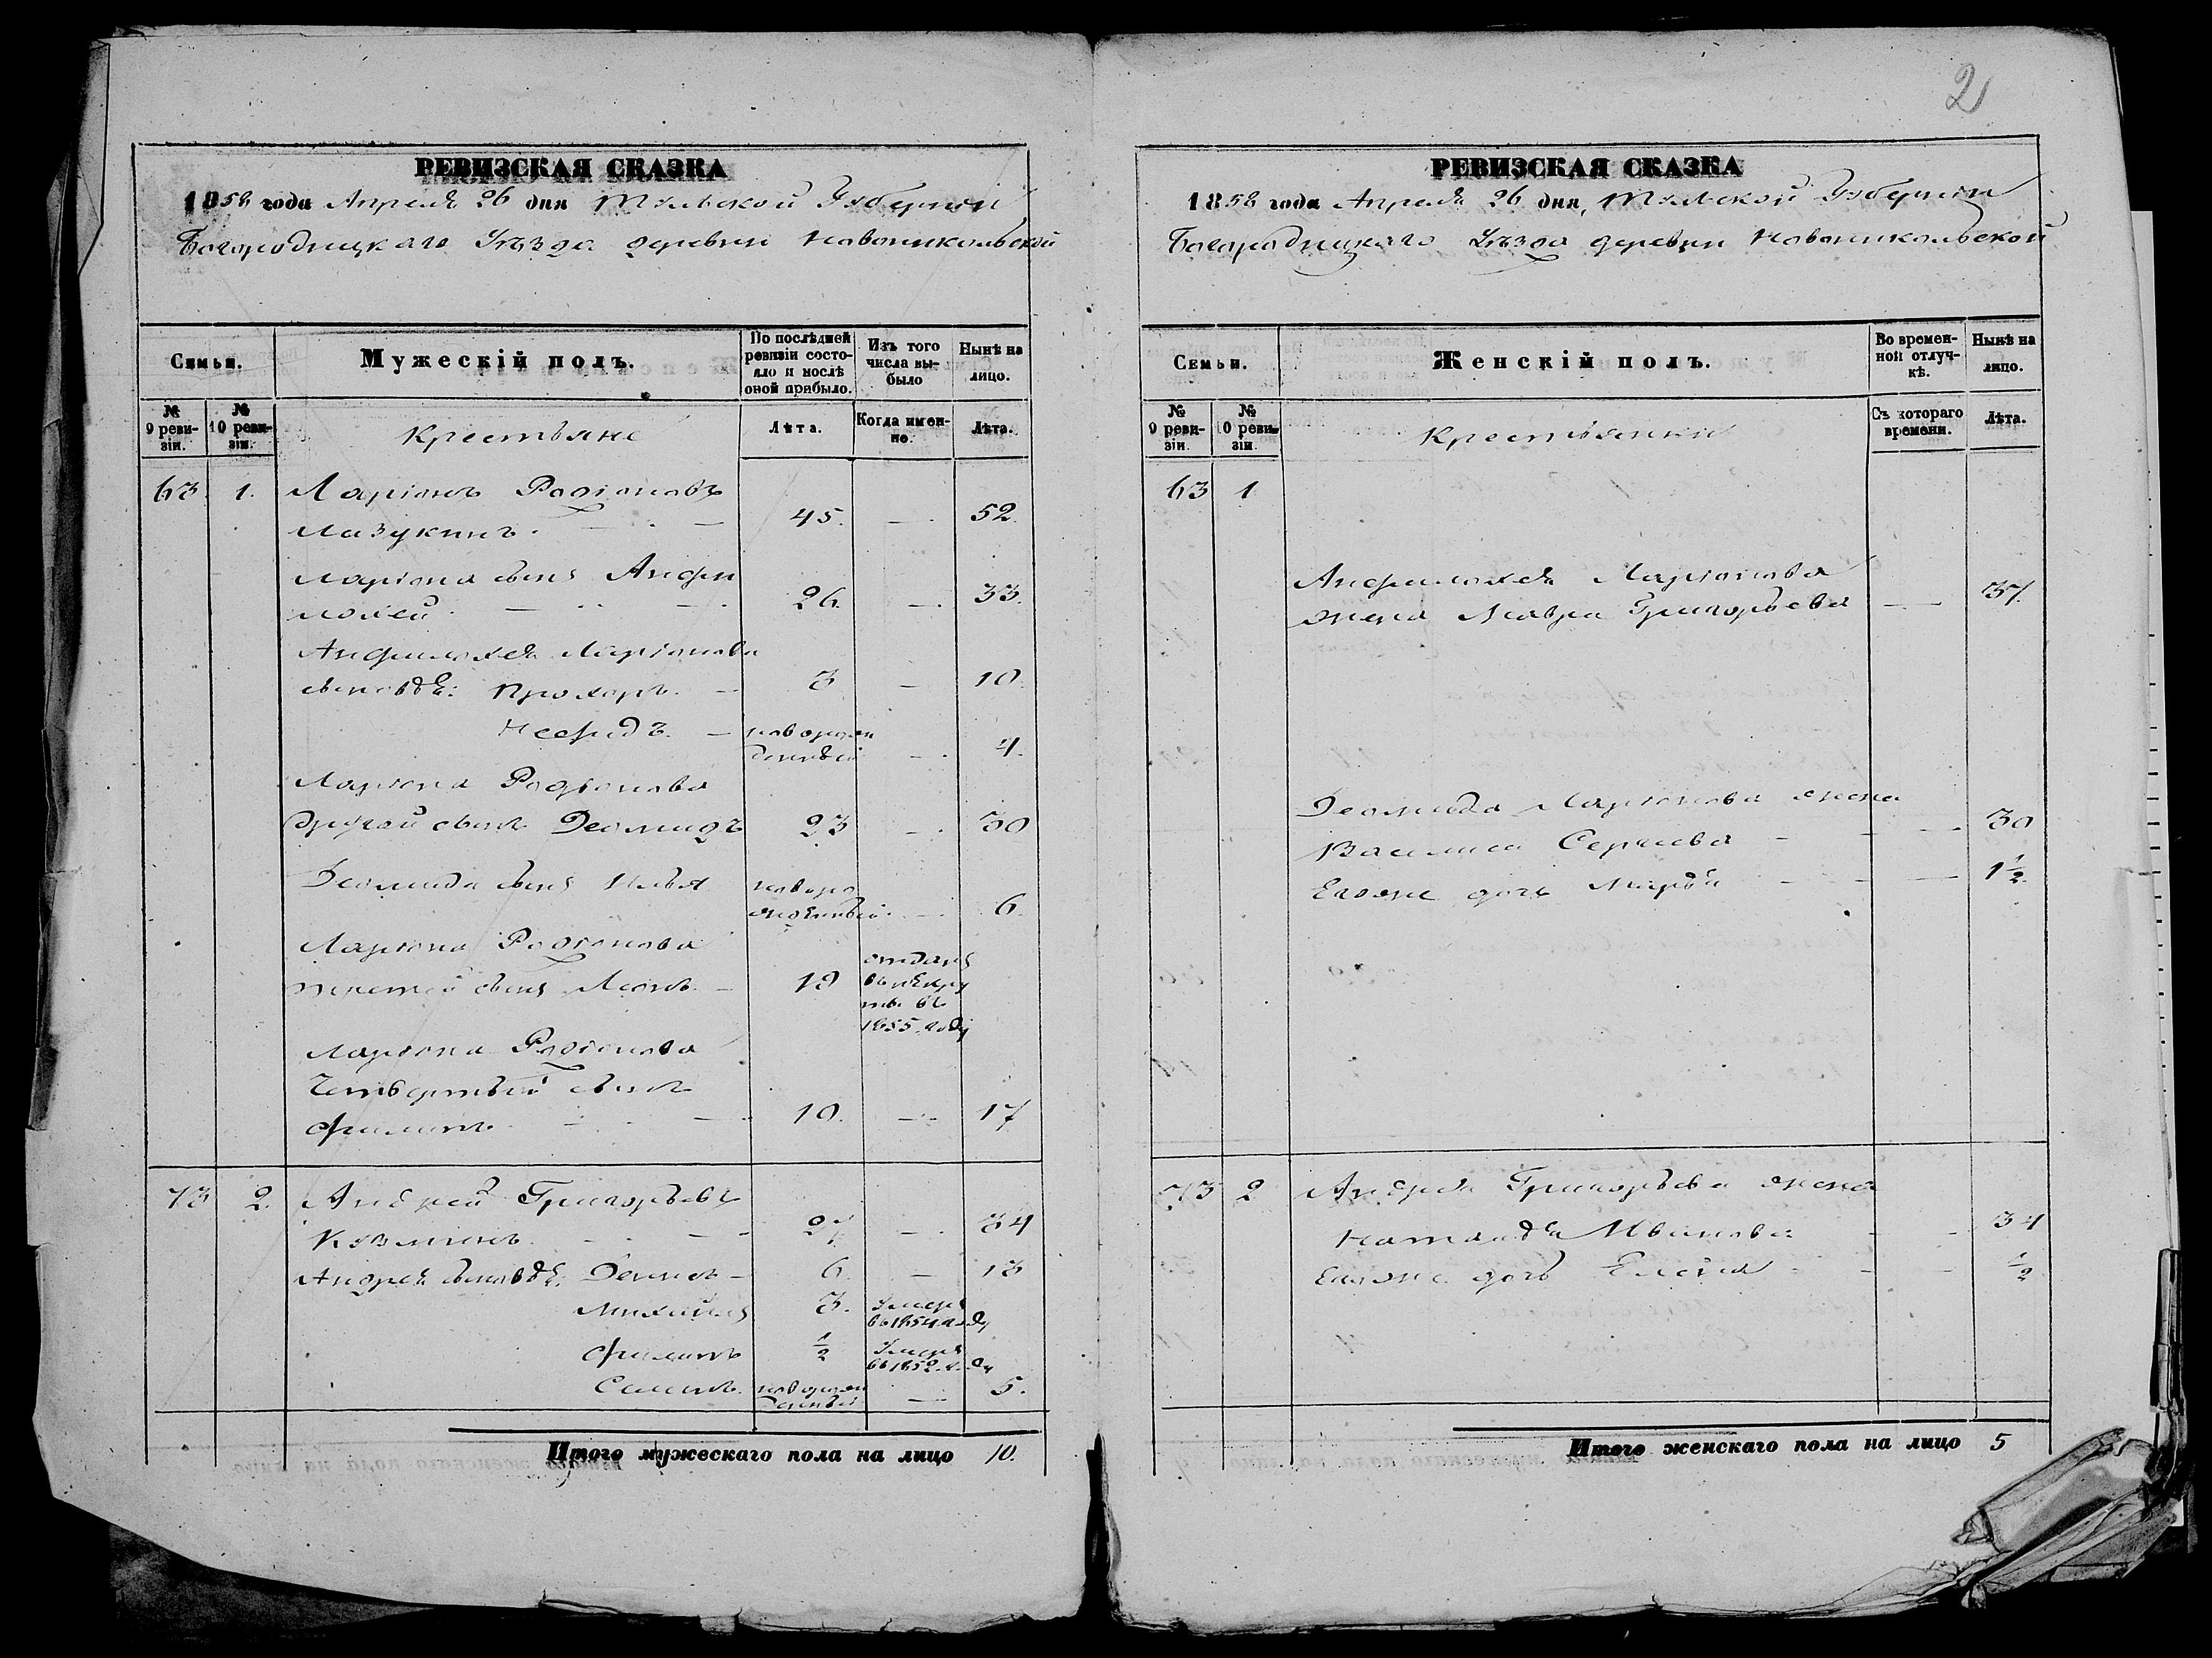 2
РЕВИЗСКАЯ СКАЗКА
1858 года Апреля 26 дня Тульской Губерніи
Богородицкаго Уѣзда деревни Новоникольской
Семьи.
Мужескій полъ.
По послѣдней ревизіи состояло и послѣ оной прибыло.
Изъ того числа выбыло
Нынѣ на лицо.
№ 9 ревизіи.
№ 10 ревизіи.
Крестьяне
Лѣта.
Когда именно.
Лѣта.
63. 1. Ларіонъ Родіоновъ
Мазукинъ. 45. — 52.
Ларіона сынъ Анфи
лохей. 26. — 33.
Анфилохея Ларіонова
сыновья: Прохоръ. — 3 — 10.
Неофидъ. — новорож
денный — 4.
Ларіона Родіонова
другой сынъ Деомидъ 23 — 30
Деомида сынъ Илья новоро
жденный. — 6.
Ларіона Родіонова
третей сынъ Леонъ. — 19 отданъ
въ рекру
ты въ
1855. году
Ларіона Родіонова
Четвертый сынъ
Филипъ. — 10. — 17
73 2. Андрей Григорьевъ
Кузминъ. — 27 — 34
Андрея сыновья: Денисъ — 6. — 13
Михайла 3. Умеръ
въ 1854 году
Филипъ 1/2 Умеръ
въ 1852. году
Семенъ. новорож
денный — 5.
Итого мужескаго пола на лицо 10.
РЕВИЗСКАЯ СКАЗКА
1858 года Апреля 26 дня, Тульской Губерніи
Богородицкаго Уѣзда деревни Новоникольской
Семьи.
Женскій полъ.
Во временной отлучкѣ.
Нынѣ на лицо.
№ 9 ревизіи.
№ 10 ревизіи.
Крестьянки
Съ котораго времени.
Лѣта.
63 1
Анфилохея Ларіонова
жена Мавра Григорьева — 37.
Деомида Ларіонова жена
Василиса Сергеева — 30
Ево же дочь Марья — 1 1/2.
73 2 Андрея Григорьева жена
Наталья Иванова — 34
Ево же дочь Елена — 1/2
Итого женскаго пола на лицо 5